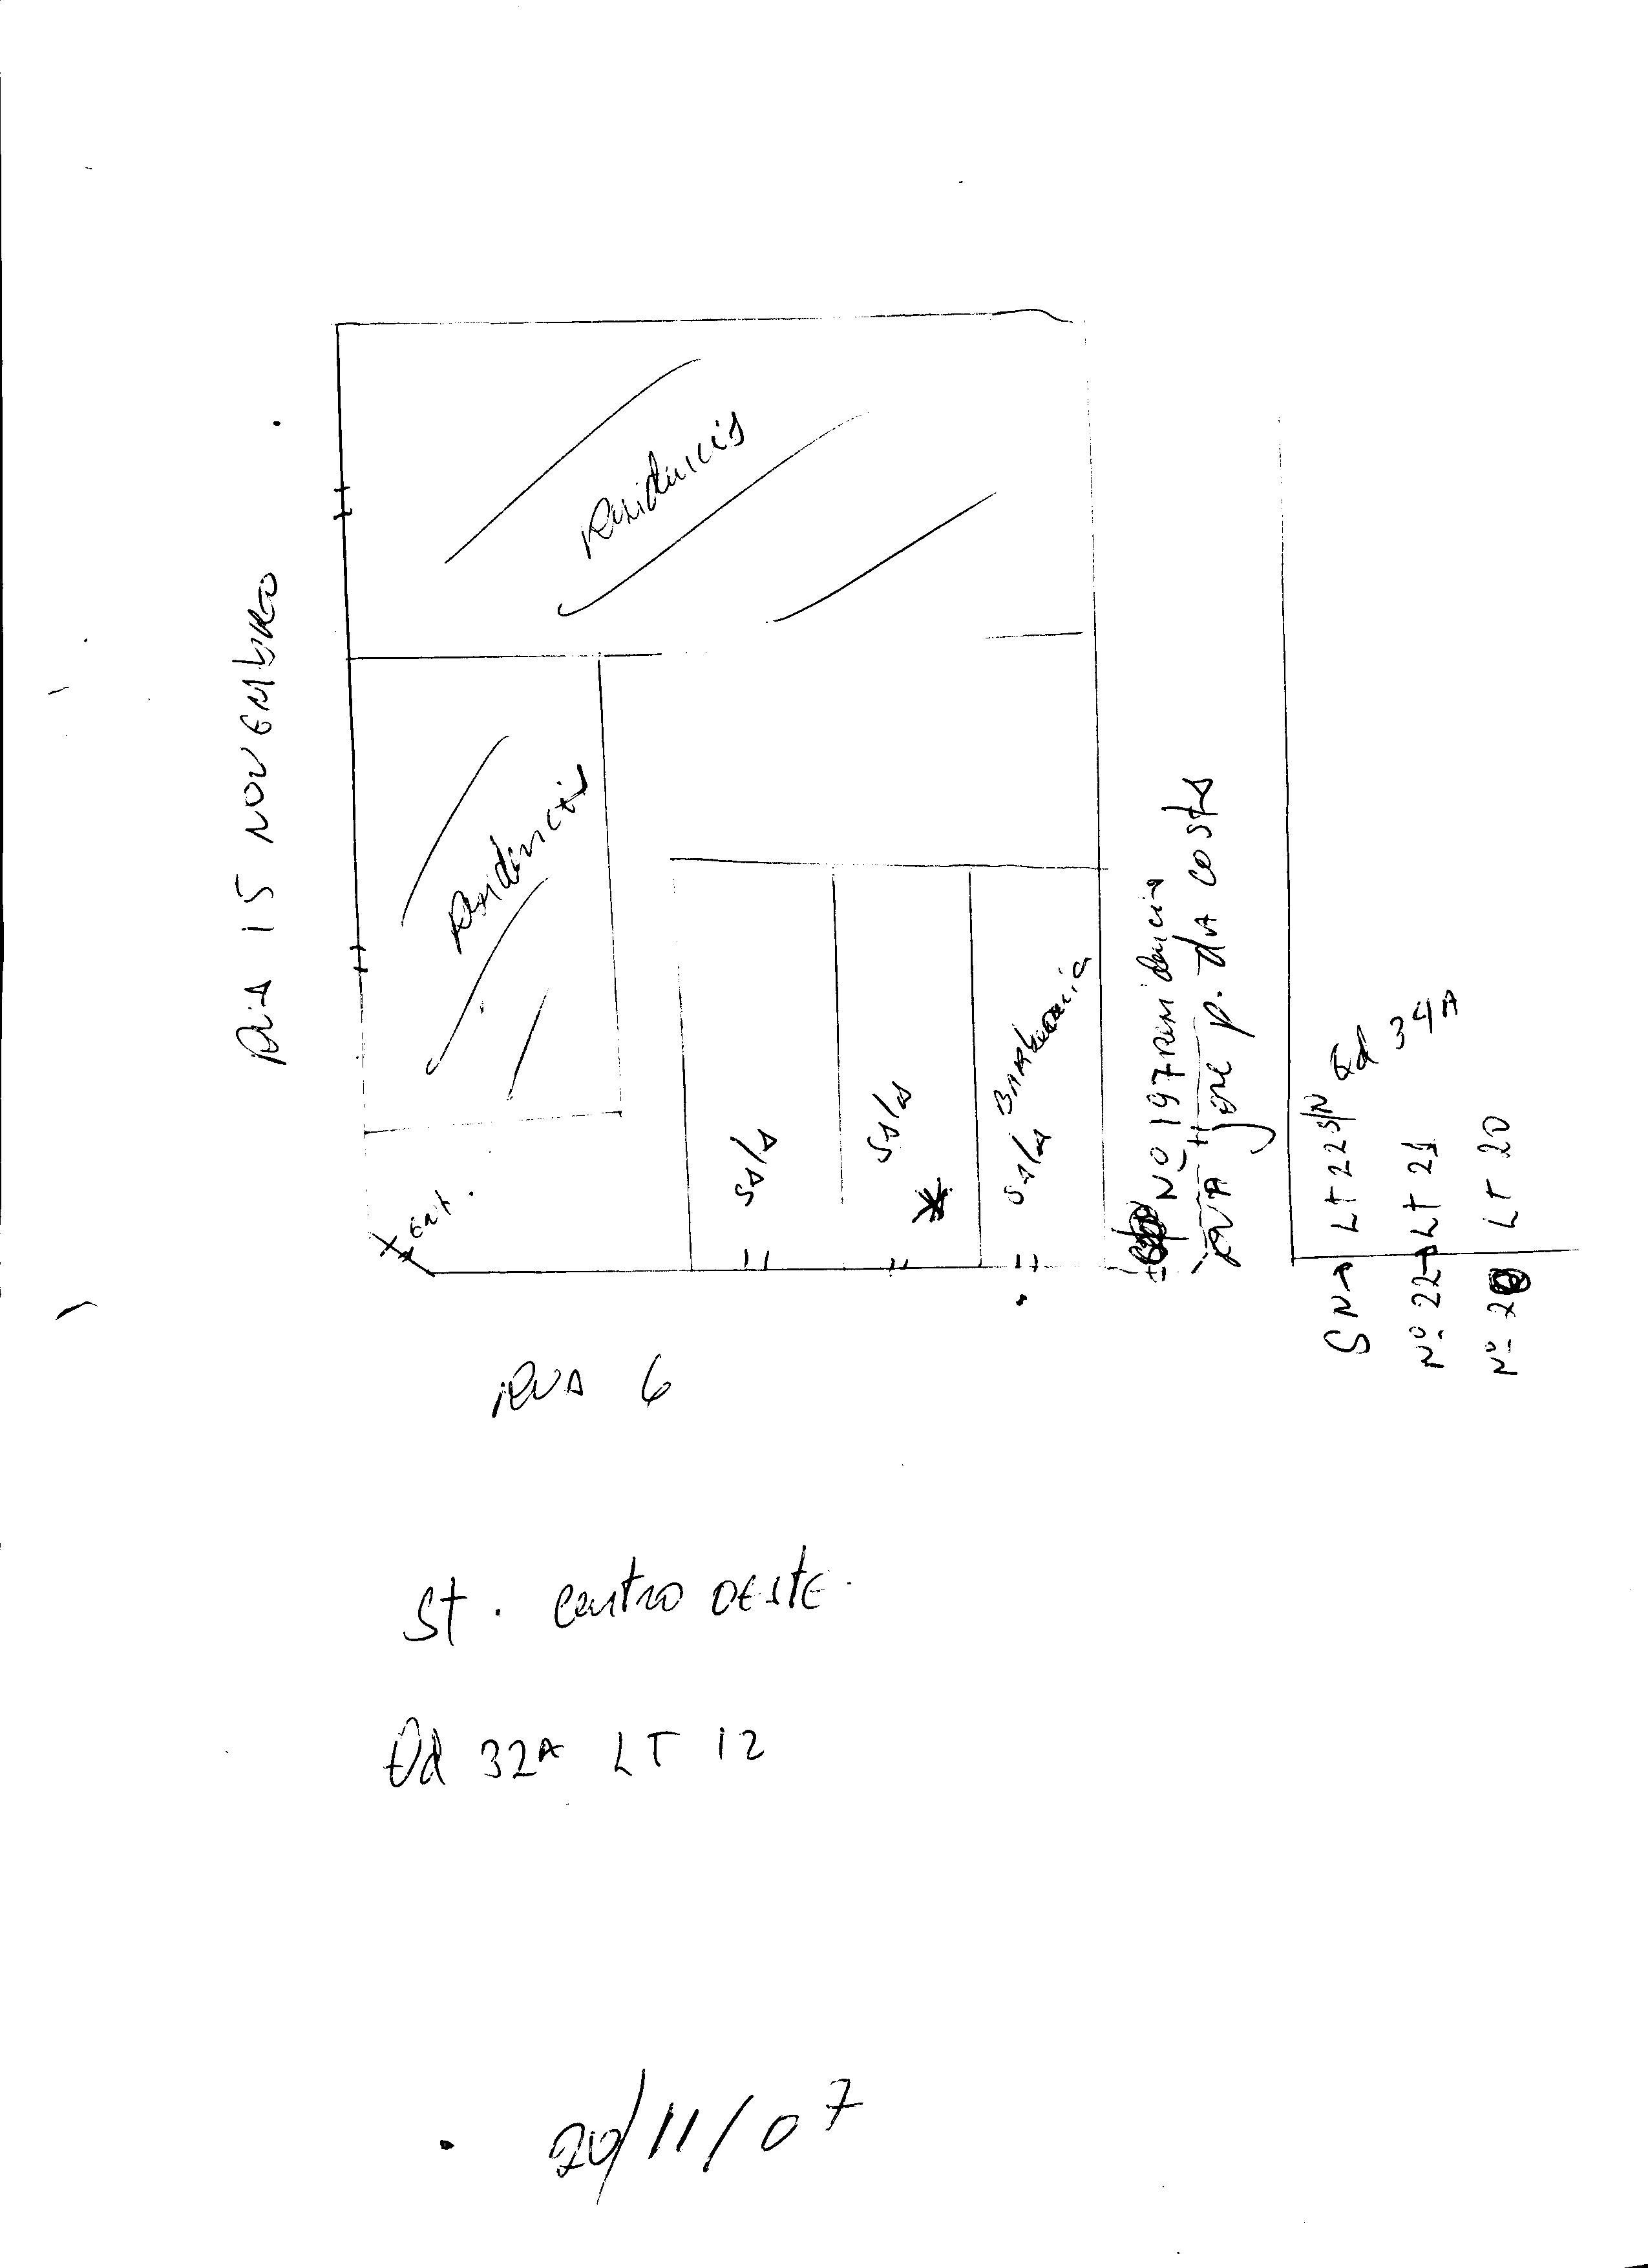 RUA 15 NOVEMBRO
Residência
Residência
Ent.
Sala
Sala
Sala Barbearia
Nº 197 Residência
RUA José P. da Costa
Qd 34A
SN LT 22 S/N
Nº 22 LT 21
LT 20
RUA 6
St. Centro OESTE.
Qd 32A LT 12
20/11/07